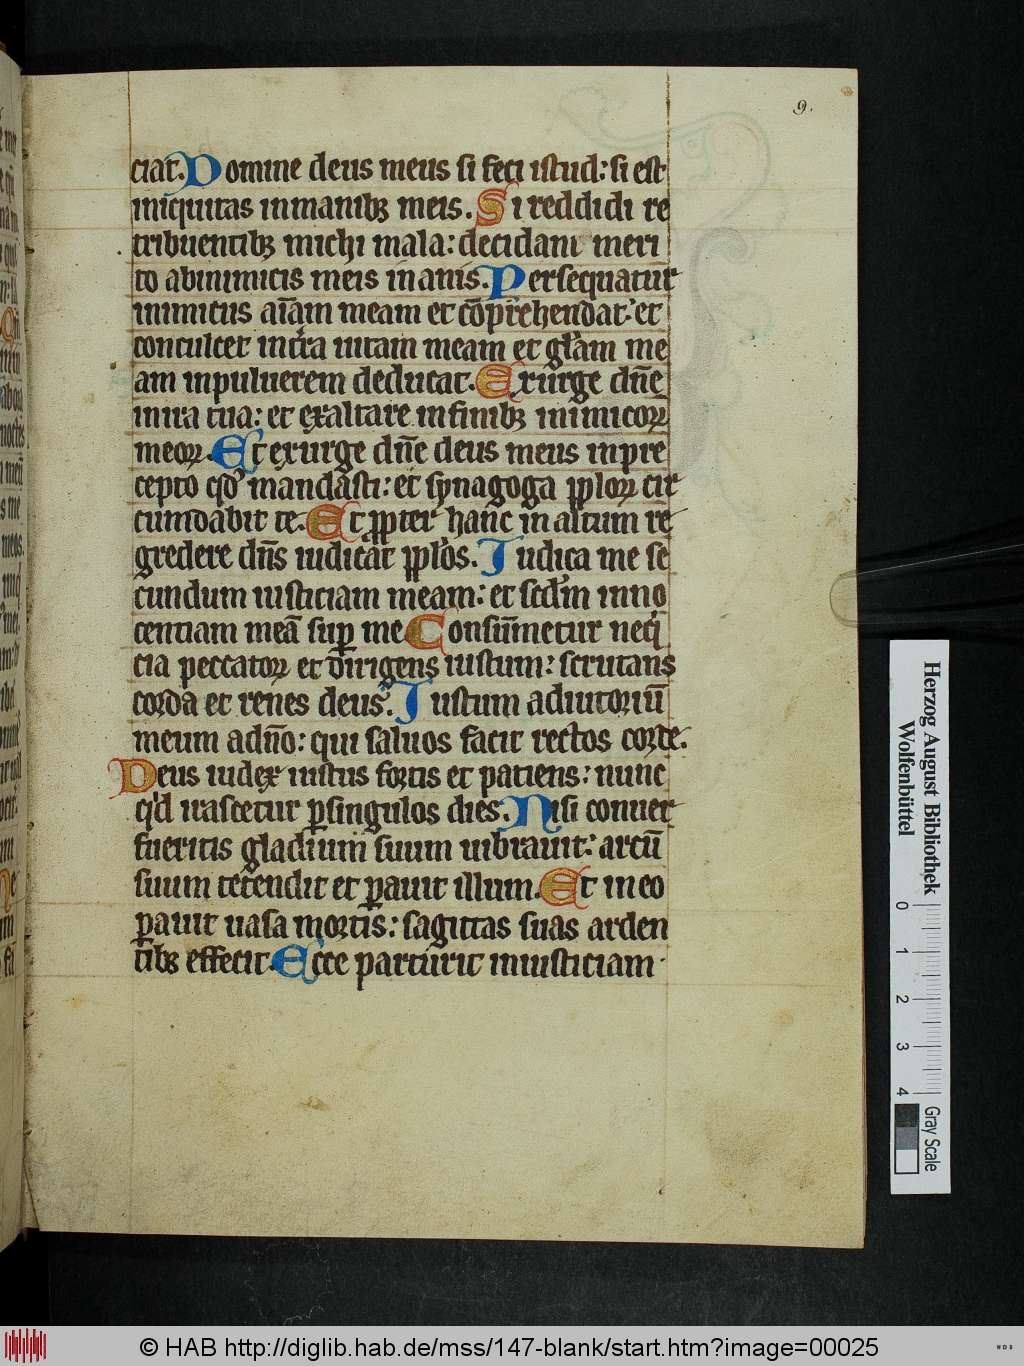 9.
ciat. Domine deus meus si feci istud: si est
iniquitas in manibꝫ meis. Si reddidi re
tribuentibꝫ michi mala: decidam meri
to abinimicis meis inanis. Persequatur
inimicus aīam meam et cōprehendat: et
conculcet in tͥra uitam meam et glͥam me
am inpuluerem deducat. Exurge dn̄e
inira tua: et exaltare infinibꝫ inimicoꝝ
meoꝝ. Et exurge dn̄e deus meus inpre
cepto qd̓ mandasti: et synagoga pp̄loꝝ cir
cumdabit te. Et ꝓpter hanc in altum re
gredere dn̄s iudicat pp̄los. Iudica me se
cundum iusticiam meam: et scd̓m inno
centiam meā suꝑ me Consūmetur neq̄
cia peccatoꝝ et dirigens iustum: scrutans
corda et renes deus. Iustum adiutoriū
meum adn̄o: qui saluos facit rectos corde.
Deus iudex iustus fortis et patiens: nunc
qͥd irascetur ꝑsingulos dies. Nisi conuer
si fueritis gladium suum uibrauit: arcū
suum tetendit et ꝑauit illum. Et in eo
ꝑauit uasa mortis: sagittas suas arden
tibꝫ effecit. Ecce parturit iniusticiam
Herzog August Bibliothek
Wolfenbüttel
0 1 2 3 4
Gray Scale
© HAB http://diglib.hab.de/mss/147-blank/start.htm?image=00025